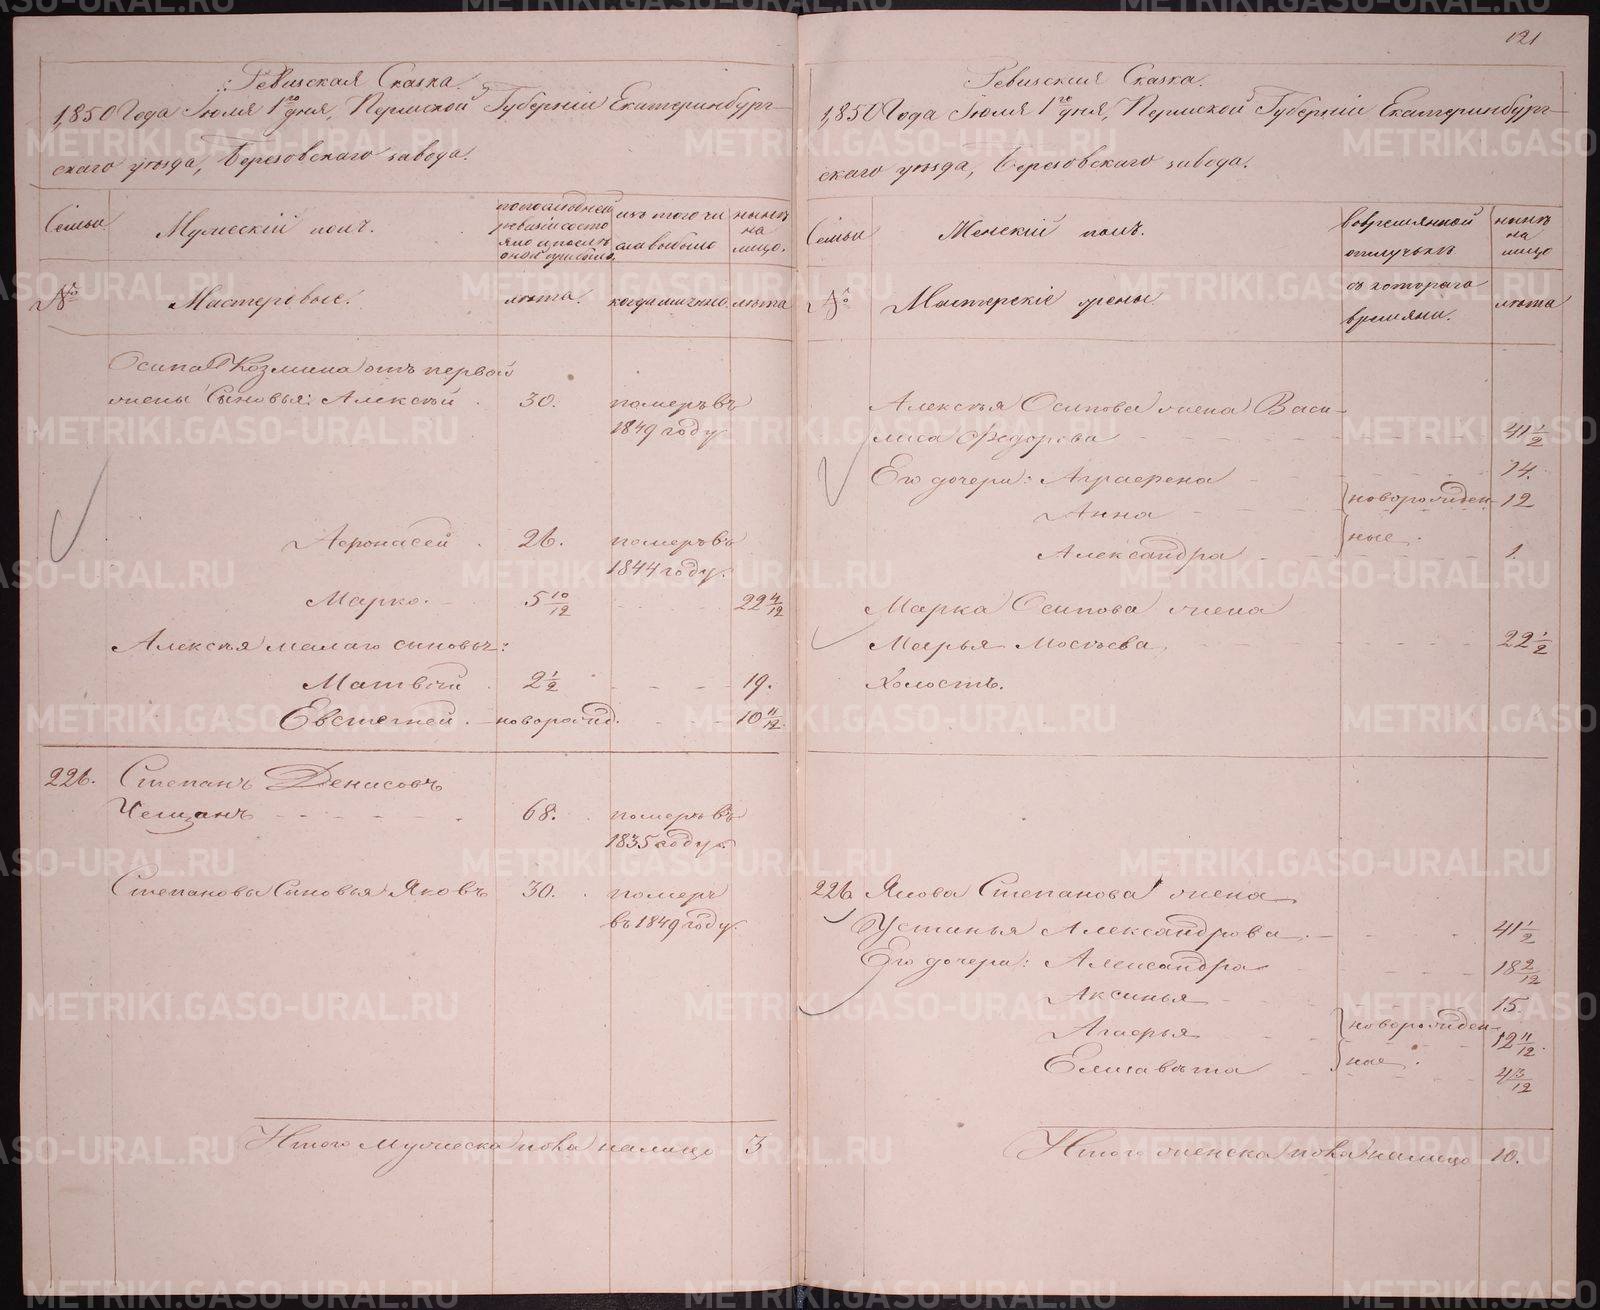 121
Ревизская Сказка.
1850 Года Июля 1го дня, Пермской Губернiи Екатеринбург-
скаго уѣзда, Березовскаго завода.
Семьи
Мужескiй полъ.
по последней
ревизiи состо
яло и после
оной прибыло
изъ того чи
сла выбыло
нынѣ
на
лицо.
№
Мастеровые.
лѣта.
когда имянно.
лѣта
Осипа Козмина отъ первой
жены Сыновья: Алексѣй 30. померъ въ
1849 году
Афонасей 26. померъ въ
1844 году.
Марко. 5 10/12 22 4/12
Алексѣя малаго сыновъ:
Матвѣй 2 1/2 19.
Евстегней. новорожд. 10 11/12
226. Степанъ Денисовъ
Чещанъ 68. померъ въ
1835 году.
Степановы Сыновья Яковъ 30. померъ
въ 1849 году.
Итого мужеска пола налицо 3
Ревизская Сказка.
1850 Года Июля 1го дня, Пермской Губернiи Екатеринбург-
скаго уѣзда, Березовскаго завода.
Семьи
Женскiй полъ.
во временной
отлучькѣ
нынѣ
на
лицо
№
Мастерскiе жены
съ котораго
времяни.
лѣта
Алексѣя Осипова жена Васи-
лиса Федорова 41 1/2
Его дочери: Аграфена 14.
Анна новорожден- 12
ные.
Александра 1.
Марка Осипова жена
Марья Мосѣева 22 1/2
Холостъ.
226 Якова Степанова жена
Устинья Александрова. 41 1/2
Его дочери: Александра 18 2/12
Аксинья 15.
Агафья новорожден- 12 11/12
ные.
Елисавѣта 4 3/12
Итого женска пола налицо 10.
METRIKI.GASO-URAL.RU